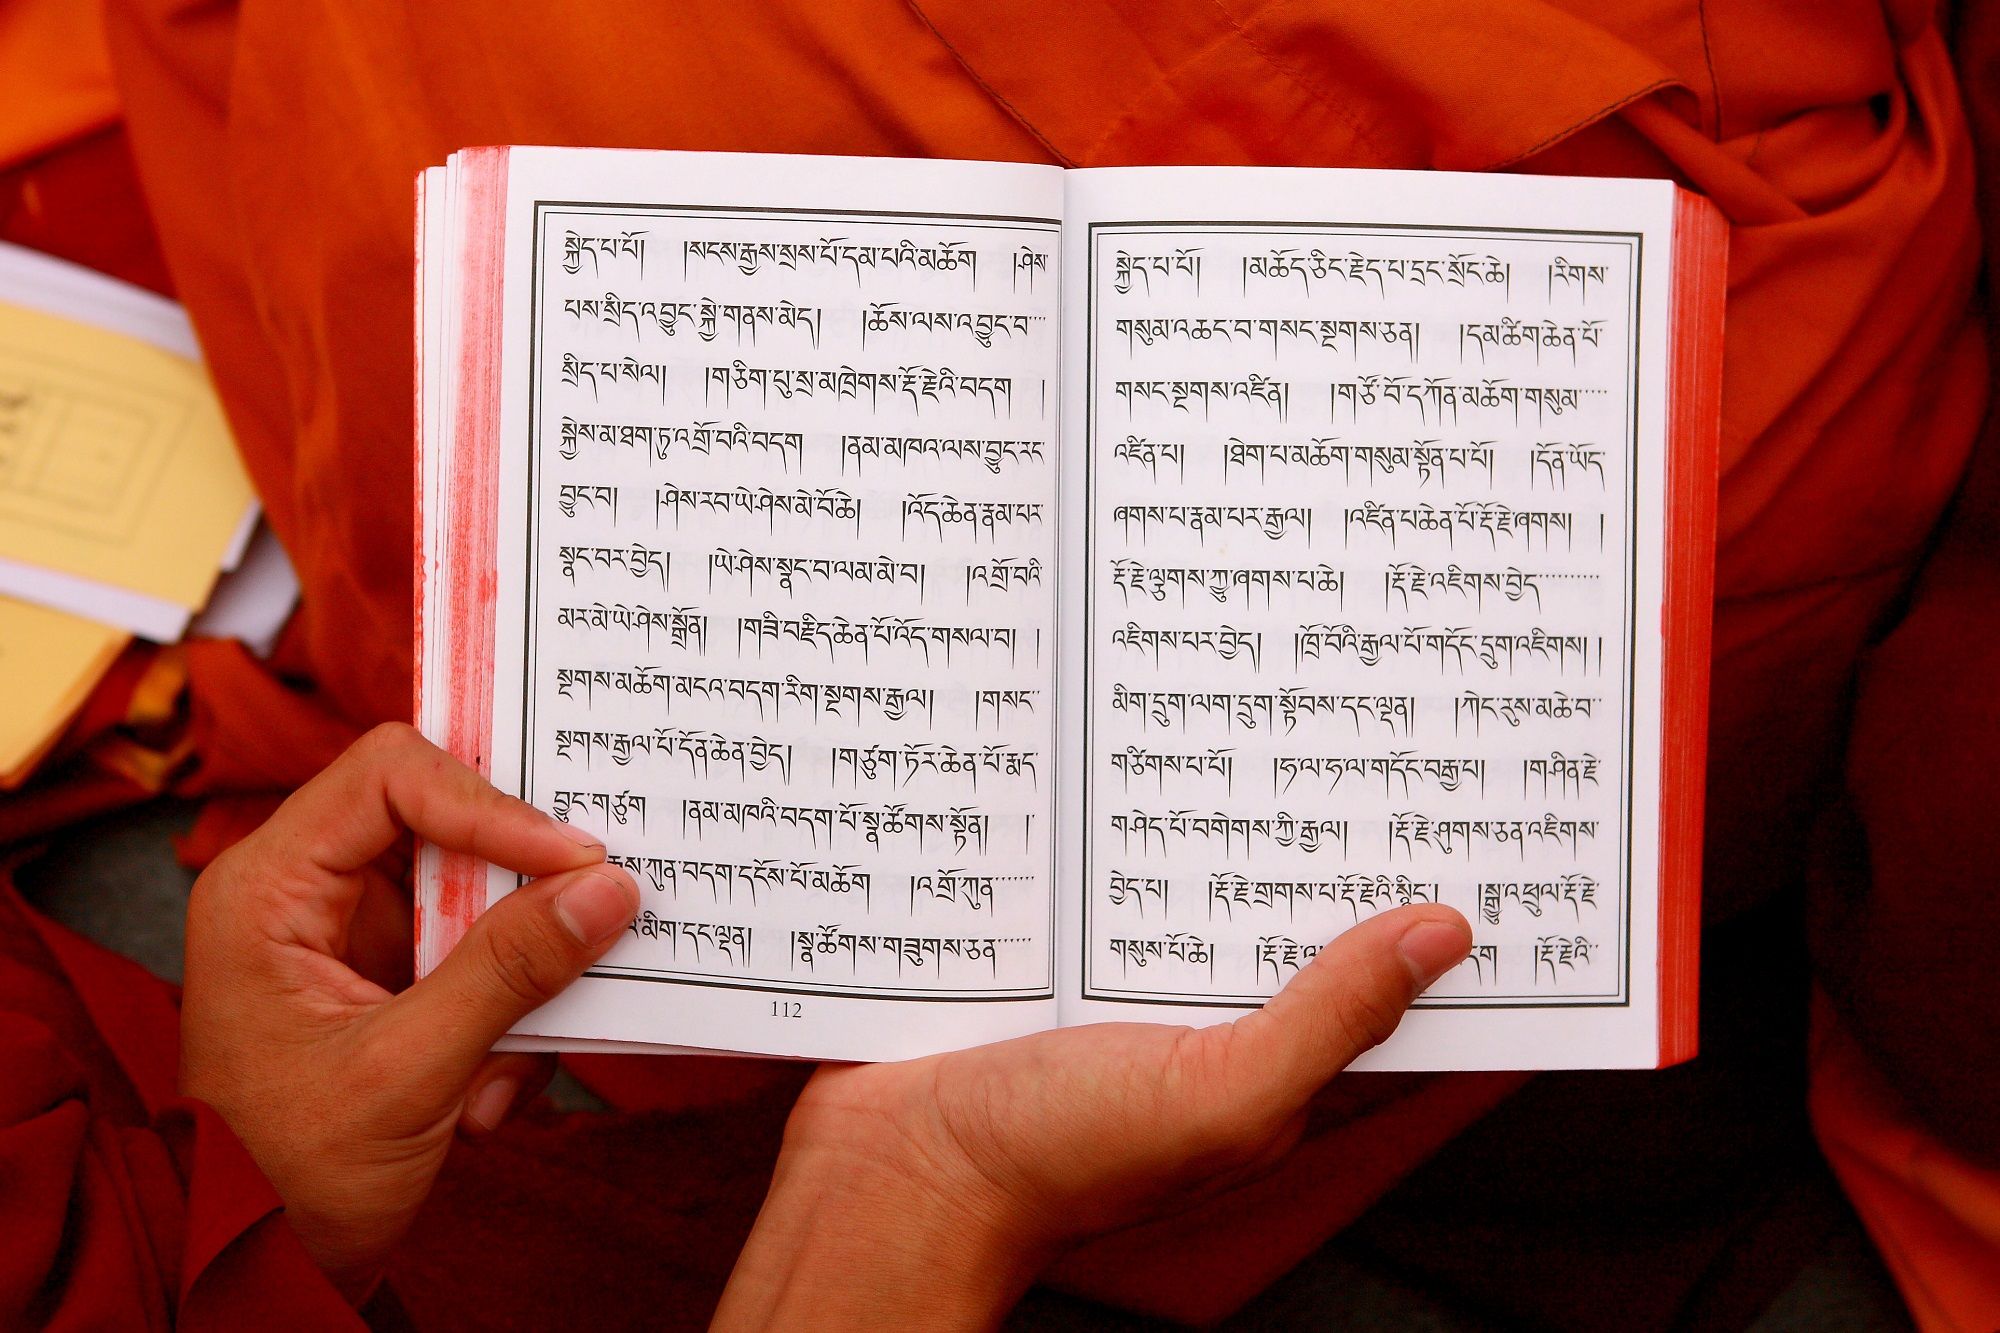 སྐྱེད་པ་པོ། །སངས་རྒྱས་སྲས་པོ་དམ་པའི་མཆོག །ཤེས་
པས་སྲིད་འབྱུང་སྐྱེ་གནས་མེད། །ཆོས་ལས་འབྱུང་བ་
སྲིད་པ་སེལ། །གཅིག་པུ་སྲ་མཁྲེགས་རྡོ་རྗེའི་བདག །
སྐྱེས་མ་ཐག་ཏུ་འགྲོ་བའི་བདག །ནམ་མཁའ་ལས་བྱུང་རང་
བྱུང་བ། །ཤེས་རབ་ཡེ་ཤེས་མེ་བོ་ཆེ། །འོད་ཆེན་རྣམ་པར་
སྣང་བར་བྱེད། །ཡེ་ཤེས་སྣང་བ་ལམ་མེ་བ། །འགྲོ་བའི་
མར་མེ་ཡེ་ཤེས་སྒྲོན། །གཟི་བརྗིད་ཆེན་པོ་འོད་གསལ་བ། །
སྔགས་མཆོག་མངའ་བདག་རིག་སྔགས་རྒྱལ། །གསང་
སྔགས་རྒྱལ་པོ་དོན་ཆེན་བྱེད། །གཙུག་ཏོར་ཆེན་པོ་རྨད་
བྱུང་གཙུག །ནམ་མཁའི་བདག་པོ་སྣ་ཚོགས་སྟོན། །
ཀུན་བདག་དངོས་པོ་མཆོག །འགྲོ་ཀུན་
མིག་དང་ལྡན། །སྣ་ཚོགས་གཟུགས་ཅན་
112
སྐྱེད་པ་པོ། །མཆོད་ཅིང་རྗེད་པ་དྲང་སྲོང་ཆེ། །རིགས་
གསུམ་འཆང་བ་གསང་སྔགས་ཅན། །དམ་ཚིག་ཆེན་པོ་
གསང་སྔགས་འཛིན། །གཙོ་བོ་དཀོན་མཆོག་གསུམ་
འཛིན་པ། །ཐེག་པ་མཆོག་གསུམ་སྟོན་པ་པོ། །དོན་ཡོད་
ཞགས་པ་རྣམ་པར་རྒྱལ། །འཛིན་པ་ཆེན་པོ་རྡོ་རྗེ་ཞགས། །
རྡོ་རྗེ་ལྕུགས་ཀྱུ་ཞགས་པ་ཆེ། །རྡོ་རྗེ་འཇིགས་བྱེད་
འཇིགས་པར་བྱེད། །ཁྲོ་བོའི་རྒྱལ་པོ་གདོང་དྲུག་འཇིགས། །
མིག་དྲུག་ལག་དྲུག་སྟོབས་དང་ལྡན། །ཀེང་རུས་མཆེ་བ་
གཙིགས་པ་པོ། །ཧ་ལ་ཧ་ལ་གདོང་བརྒྱ་པ། །གཤིན་རྗེ་
གཤེད་པོ་བགེགས་ཀྱི་རྒྱལ། །རྡོ་རྗེ་ཤུགས་ཅན་འཇིགས་
བྱེད་པ། །རྡོ་རྗེ་གྲགས་པ་རྡོ་རྗེའི་སྙིང་། །སྒྱུ་འཕྲུལ་རྡོ་རྗེ་
གསུས་པོ་ཆེ། །རྡོ་རྗེ་ །རྡོ་རྗེའི་